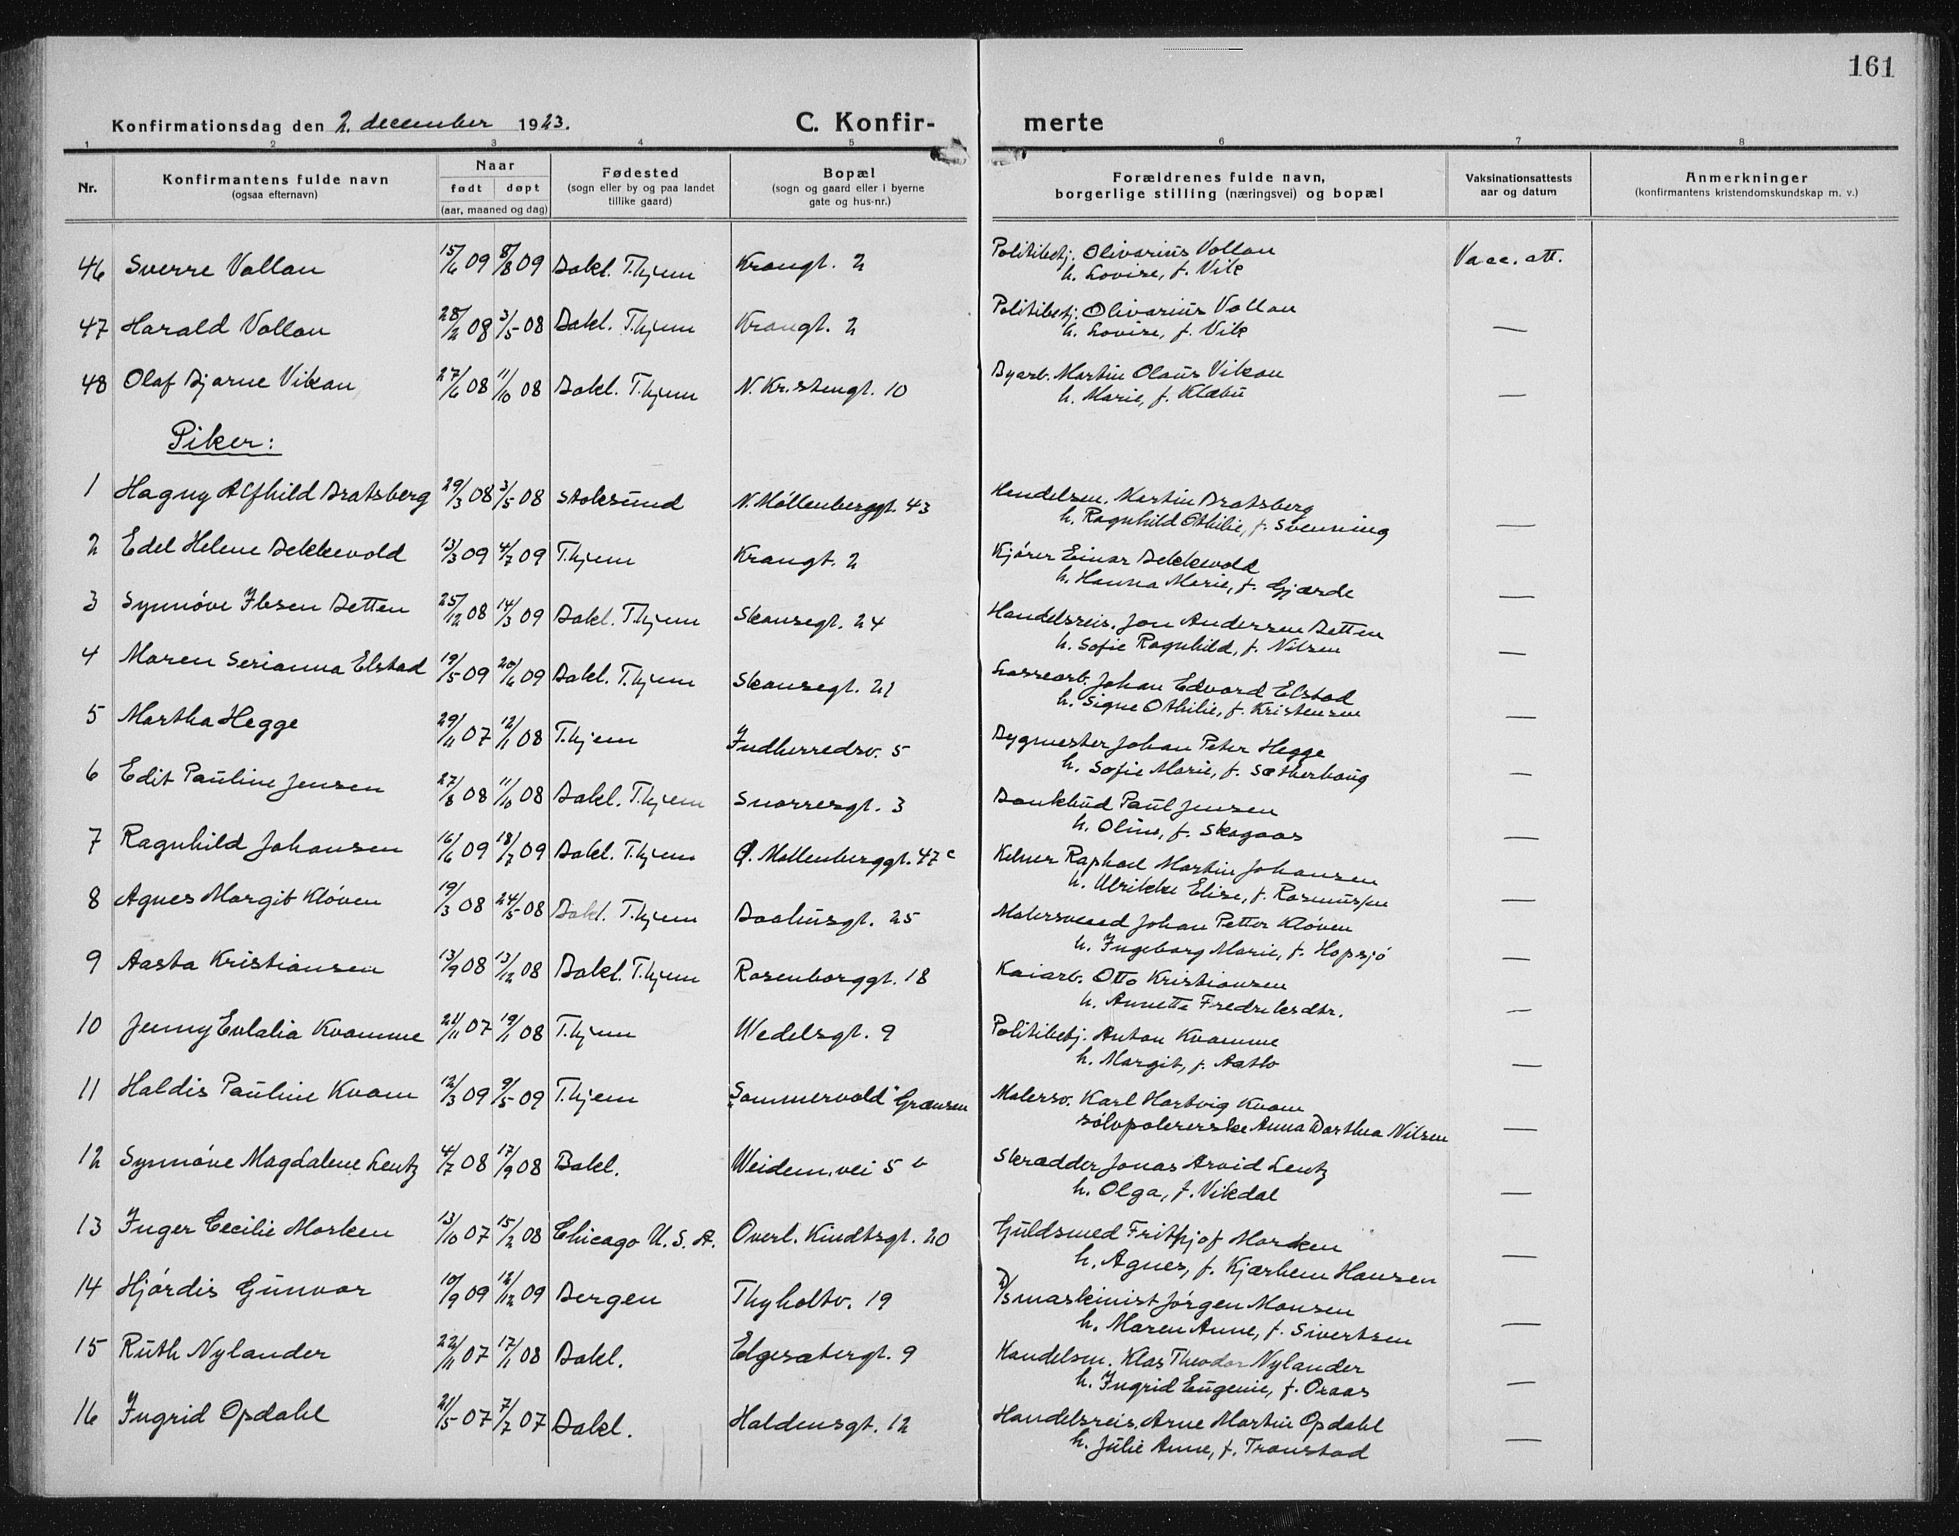 161
Konfirmationsdag den 2. december 1923. C. Konfir- merte
1 2 3 4 5 6 7 8
Nr. Konfirmantens fulde navn (ogsaa efternavn) Naar født døpt (aar, maaned og dag) Fødested (sogn eller by og paa landet tillike gaard) Bopæl (sogn og gaard eller i byerne gate og hus-nr.) Forældrenes fulde navn, borgerlige stilling (næringsvei) og bopæl Vaksinationsattests aar og datum Anmerkninger (konfirmantens kristendomskundskap m. v.)
46 Sverre Vollan 15/6 09 8/8 09 Bakl. T.hjem Krangt. 2 Politibetj. Olivarius Vollan Vacc. att.
h. Lovise, f. Vik
47 Harald Vollan 28/2 08 3/5 08 Bakl. T.hjem Krangt. 2 Politibetj. Olivarius Vollan —
h. Lovise, f. Vik
48 Olaf Bjarne Vikan 27/6 08 11/10 08 Bakl. T.hjem N. Kristengt. 10 Byarb. Martin Olaus Vikan
h. Marie, f. Klæbu —
Piker:
1 Hagny Alfhild Bratsberg 29/3 08 3/5 08 Stoksund N. Möllenberggt. 43 Handelsm. Martin Bratsberg
h. Ragnhild Othilie, f. Svenning —
2 Edel Helene Bekkevold 13/3 09 4/7 09 T.hjem Krangt. 2 Kjører Einar Bekkevold
h. Hanna Marie, f. Gjærde —
3 Synnöve Ibsen Betten 25/12 08 14/3 09 Bakl. T.hjem Skansegt. 24 Handelsreis. Jon Andersen Betten
h. Sofie Ragnhild, f. Nilsen —
4 Maren Serianna Elstad 19/5 09 20/6 09 Bakl. T.hjem Skansegt. 21 Lossearb. Johan Edvard Elstad
h. Signe Othilie, f. Kristensen —
5 Martha Hegge 29/11 07 12/1 08 T.hjem Indherredsv. 5 Bygmester Johan Peter Hegge
h. Sofie Marie, f. Sætherhaug —
6 Edit Pauline Jensen 27/8 08 11/10 08 Bakl. T.hjem Snorresgt. 3 Bankbud Paul Jensen
h. Oline, f. Skagaas —
7 Ragnhild Johansen 16/6 09 18/7 09 Bakl. T.hjem Ø. Møllenberggt. 47 c Kelner Raphael Martin Johansen
h. Ulrikke Elise, f. Rasmussen —
8 Agnes Margit Kløven 19/3 08 24/5 08 Bakl. T.hjem Baahusgt. 25 Malersvend Johan Petter Kløven
h. Ingeborg Marie, f. Hopsjö —
9 Aasta Kristiansen 13/9 08 13/12 08 Bakl. T.hjem Rosenborggt. 18 Kaiarb. Otto Kristiansen
h. Annette Fredriksdtr. —
10 Jenny Eulalia Kvamme 21/11 07 19/1 08 T.hjem Wedelsgt. 9 Politibetj. Anton Kvamme
h. Margit, f. Aatlo —
11 Haldis Pauline Kvam 12/3 09 9/5 09 T.hjem „Sommervold" Grænsen Malersv. Karl Hartvig Kvam
sølvpolererske Anna Dorthea Nilsen —
12 Synnöve Magdalene Lentz 4/7 08 17/9 08 Bakl. Weidem.vei 5 b Skrædder Jonas Arvid Lentz
h. Olga, f. Vikdal —
13 Inger Cecilie Morken 13/10 07 15/2 08 Chicago U. S. A. Overl. Kindtsgt. 20 Guldsmed Frithjof Morken
h. Agnes, f. Kjærhem Hansen —
14 Hjördis Gunvor 10/9 09 12/12 09 Bergen Thyholtv. 19 D/S maskinist Jörgen Monsen
h. Maren Anne, f. Sivertsen —
15 Ruth Nylander 22/11 07 17/1 08 Bakl. Elgesætergt. 9 Handelsm. Klas Theodor Nylander
h. Ingrid Eugenie, f. Oraas —
16 Ingrid Opdahl 21/5 07 7/7 07 Bakl. Haldensgt. 12 Handelsreis. Arne Martin Opdahl
h. Julie Anne, f. Transtad —